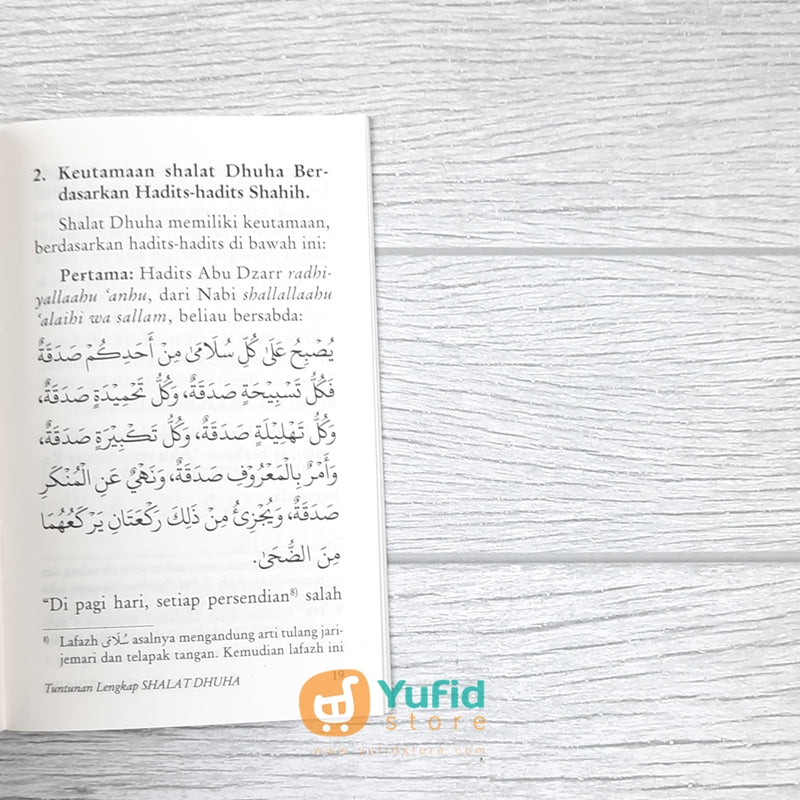 2. Keutamaan shalat Dhuha Ber-
dasarkan Hadits-hadits Shahih.
Shalat Dhuha memiliki keutamaan,
berdasarkan hadits-hadits di bawah ini:
Pertama: Hadits Abu Dzarr radhi-
yallaahu ‘anhu, dari Nabi shallallaahu
‘alaihi wa sallam, beliau bersabda:
يُصْبِحُ عَلَى كُلِّ سُلَامَى مِنْ أَحَدِكُمْ صَدَقَةٌ
فَكُلُّ تَسْبِيْحَةٍ صَدَقَةٌ، وَكُلُّ تَحْمِيْدَةٍ صَدَقَةٌ،
وَكُلُّ تَهْلِيْلَةٍ صَدَقَةٌ، وَكُلُّ تَكْبِيْرَةٍ صَدَقَةٌ،
وَأَمْرٌ بِالْمَعْرُوْفِ صَدَقَةٌ، وَنَهْيٌ عَنِ الْمُنْكَرِ
صَدَقَةٌ، وَيُجْزِئُ مِنْ ذَلِكَ رَكْعَتَانِ يَرْكَعُهُمَا
مِنَ الضُّحَى.
“Di pagi hari, setiap persendian⁸⁾ salah
⁸⁾ Lafazh سُلَامَى asalnya mengandung arti tulang jari-
jemari dan telapak tangan. Kemudian lafazh ini
19
Tuntunan Lengkap SHALAT DHUHA
Yufid
store
www.yufidstore.com